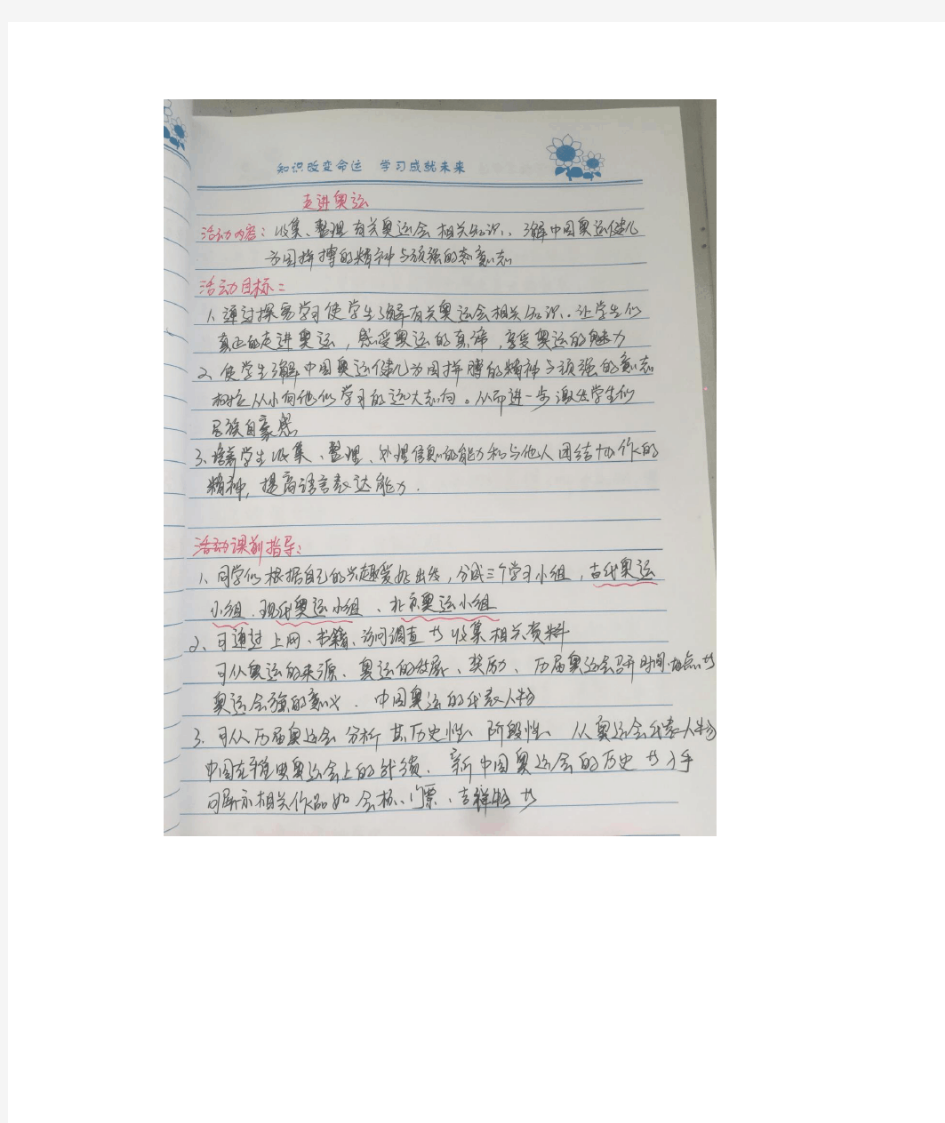 知识改变命运 学习成就未来
走进奥运
活动内容：收集、整理有关奥运会相关知识、了解中国奥运健儿
为国拼搏的精神与顽强的意志
活动目标：
1、通过探究学习使学生了解有关奥运会相关知识、让学生们
真正的走进奥运，感受奥运的真谛，享受奥运的魅力
2、使学生了解中国奥运健儿为国拼搏的精神与顽强的意志
树立从小向他们学习的远大志向。从而进一步激发学生们
民族自豪感
3、培养学生收集、整理、处理信息的能力和与他人团结协作的
精神，提高语言表达能力．
活动课前指导：
1、同学们根据自己的兴趣爱好出发，分成三个学习小组，古代奥运
小组、现代奥运小组、北京奥运小组
2、可通过上网、书籍、访问调查等收集相关资料
可从奥运的来源、奥运的发展、奖励、历届奥运会召开时间、地点等
奥运会的意义．中国奥运的代表人物
3、可从历届奥运会分析其历史性、阶段性、从奥运会代表人物
中国在奥运会上的成绩、新中国奥运会的历史等入手
可展示相关作品如会标、门票、吉祥物等